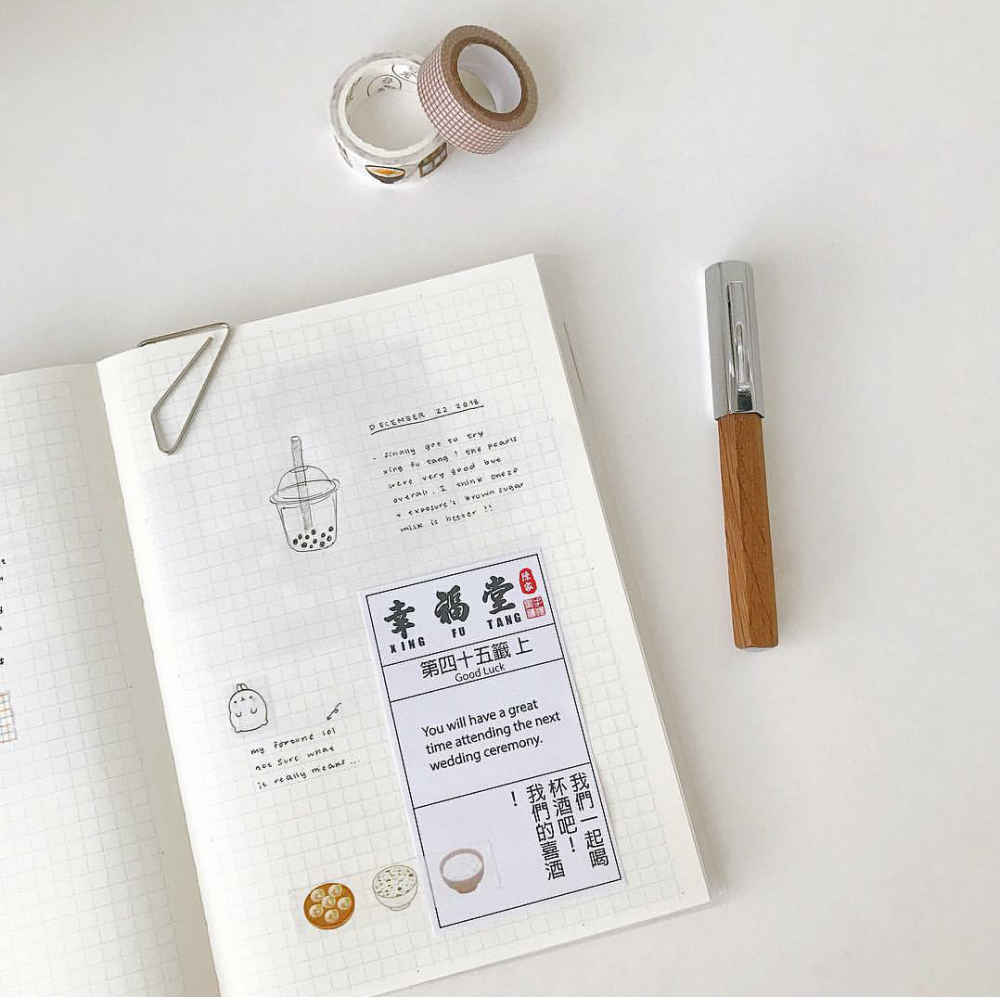 DECEMBER 22 2018
- finally got to try
xing fu tang ! the pearls
were very good but
overall, I think onezo
+ exposure's brown sugar
milk is better !!
幸福堂
陳家
XING FU TANG
第四十五籤 上
Good Luck
You will have a great
time attending the next
wedding ceremony.
我們一起喝
杯酒吧！
我們的喜酒
！
my fortune lol
not sure what
it really means...